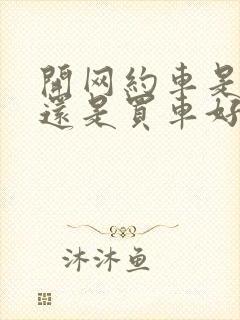 開网約車是
還是買車好
沐沐鱼